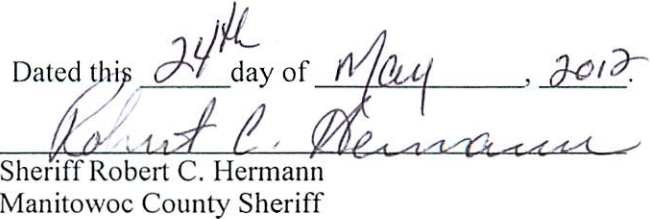 Dated this 24th day of May, 2012.
Robert C. Hermann
Sheriff Robert C. Hermann
Manitowoc County Sheriff